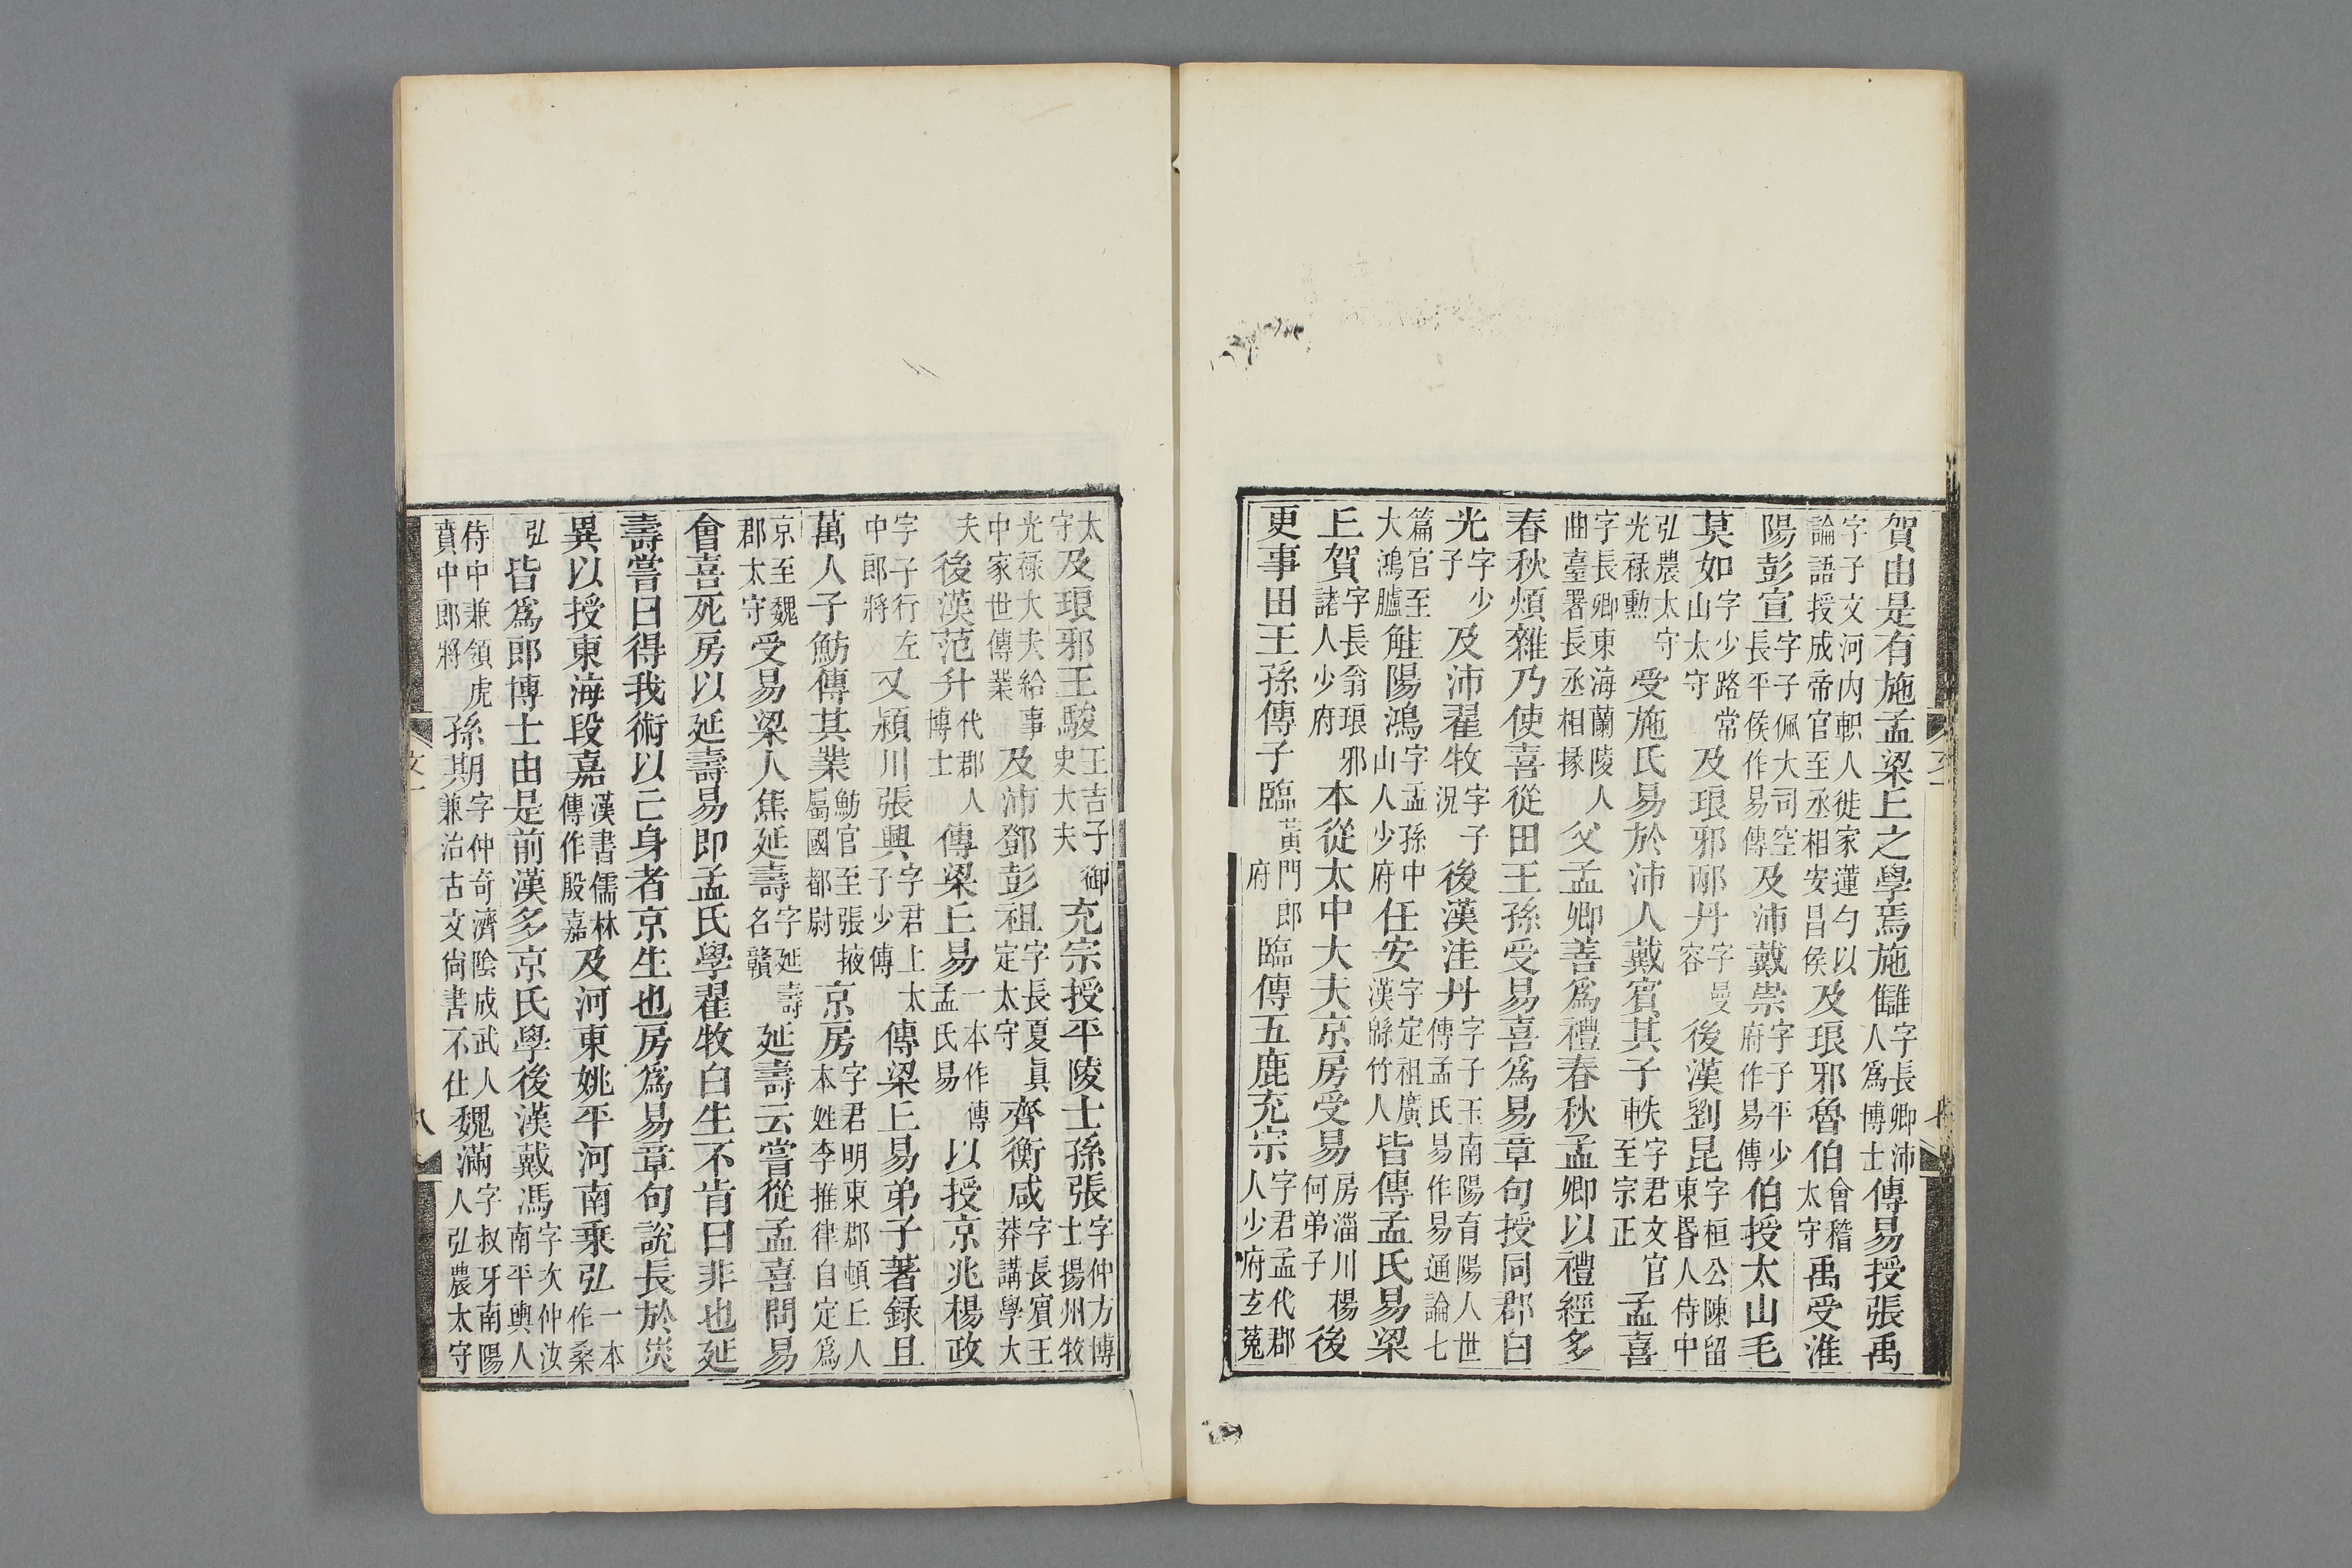 賀由是有施孟梁丘之學焉施讎字長卿沛人爲博士傳易授張禹
字子文河內軹人徙家蓮勺以論語授成帝官至丞相安昌侯及琅邪魯伯會稽太守禹受淮
陽彭宣字子佩大司空長平侯作易傳及沛戴崇字子平少府作易傳伯授太山毛
莫如字少路常山太守及琅邪邴丹字曼容後漢劉昆字桓公陳留東昬人侍中
弘農太守光祿勲受施氏易於沛人戴賓其子軼字君文官至宗正孟喜
字長卿東海蘭陵人曲臺署長丞相掾父孟卿善爲禮春秋孟卿以禮經多
春秋煩雜乃使喜從田王孫受易喜爲易章句授同郡白
光字少子及沛翟牧字子況後漢洼丹字子玉南陽育陽人世傳孟氏易作易通論七
篇官至大鴻臚觟陽鴻字孟孫中山人少府任安字定祖廣漢緜竹人皆傳孟氏易梁
丘賀字長翁琅邪諸人少府本從太中大夫京房受易房淄川楊何弟子後
更事田王孫傳子臨黃門郎府臨傳五鹿充宗字君孟代郡人少府玄菟
太守及琅邪王駿王吉子御史大夫充宗授平陵士孫張字仲方博士揚州牧
光祿大夫給事中家世傳業及沛鄧彭祖字長夏眞定太守齊衡咸字長賓王莽講學大
夫後漢范升代郡人博士傳梁丘易一本作傳孟氏易以授京兆楊政
字子行左中郎將又潁川張興字君上太子少傅傳梁丘易弟子著録且
萬人子魴傳其業魴官至張掖屬國都尉京房字君明東郡頓丘人本姓李推律自定爲
京至魏郡太守受易梁人焦延壽字延壽名贛延壽云嘗從孟喜問易
會喜死房以延壽易即孟氏學翟牧白生不肯曰非也延
壽嘗曰得我術以亡身者京生也房爲易章句說長於災
異以授東海段嘉漢書儒林傳作殷嘉及河東姚平河南乗弘一本作桑
弘皆爲郎博士由是前漢多京氏學後漢戴馮字次仲汝南平輿人
侍中兼領虎賁中郎將孫期字仲奇濟陰成武人兼治古文尙書不仕魏滿字叔牙南陽人弘農太守